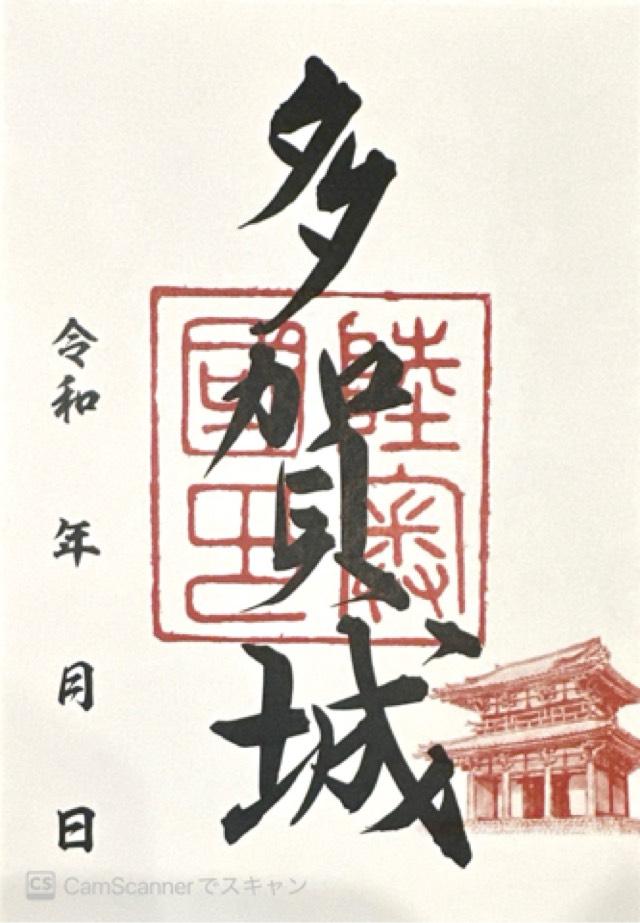 多賀城
陸奥
國印
令和 年 月 日
CS CamScannerでスキャン